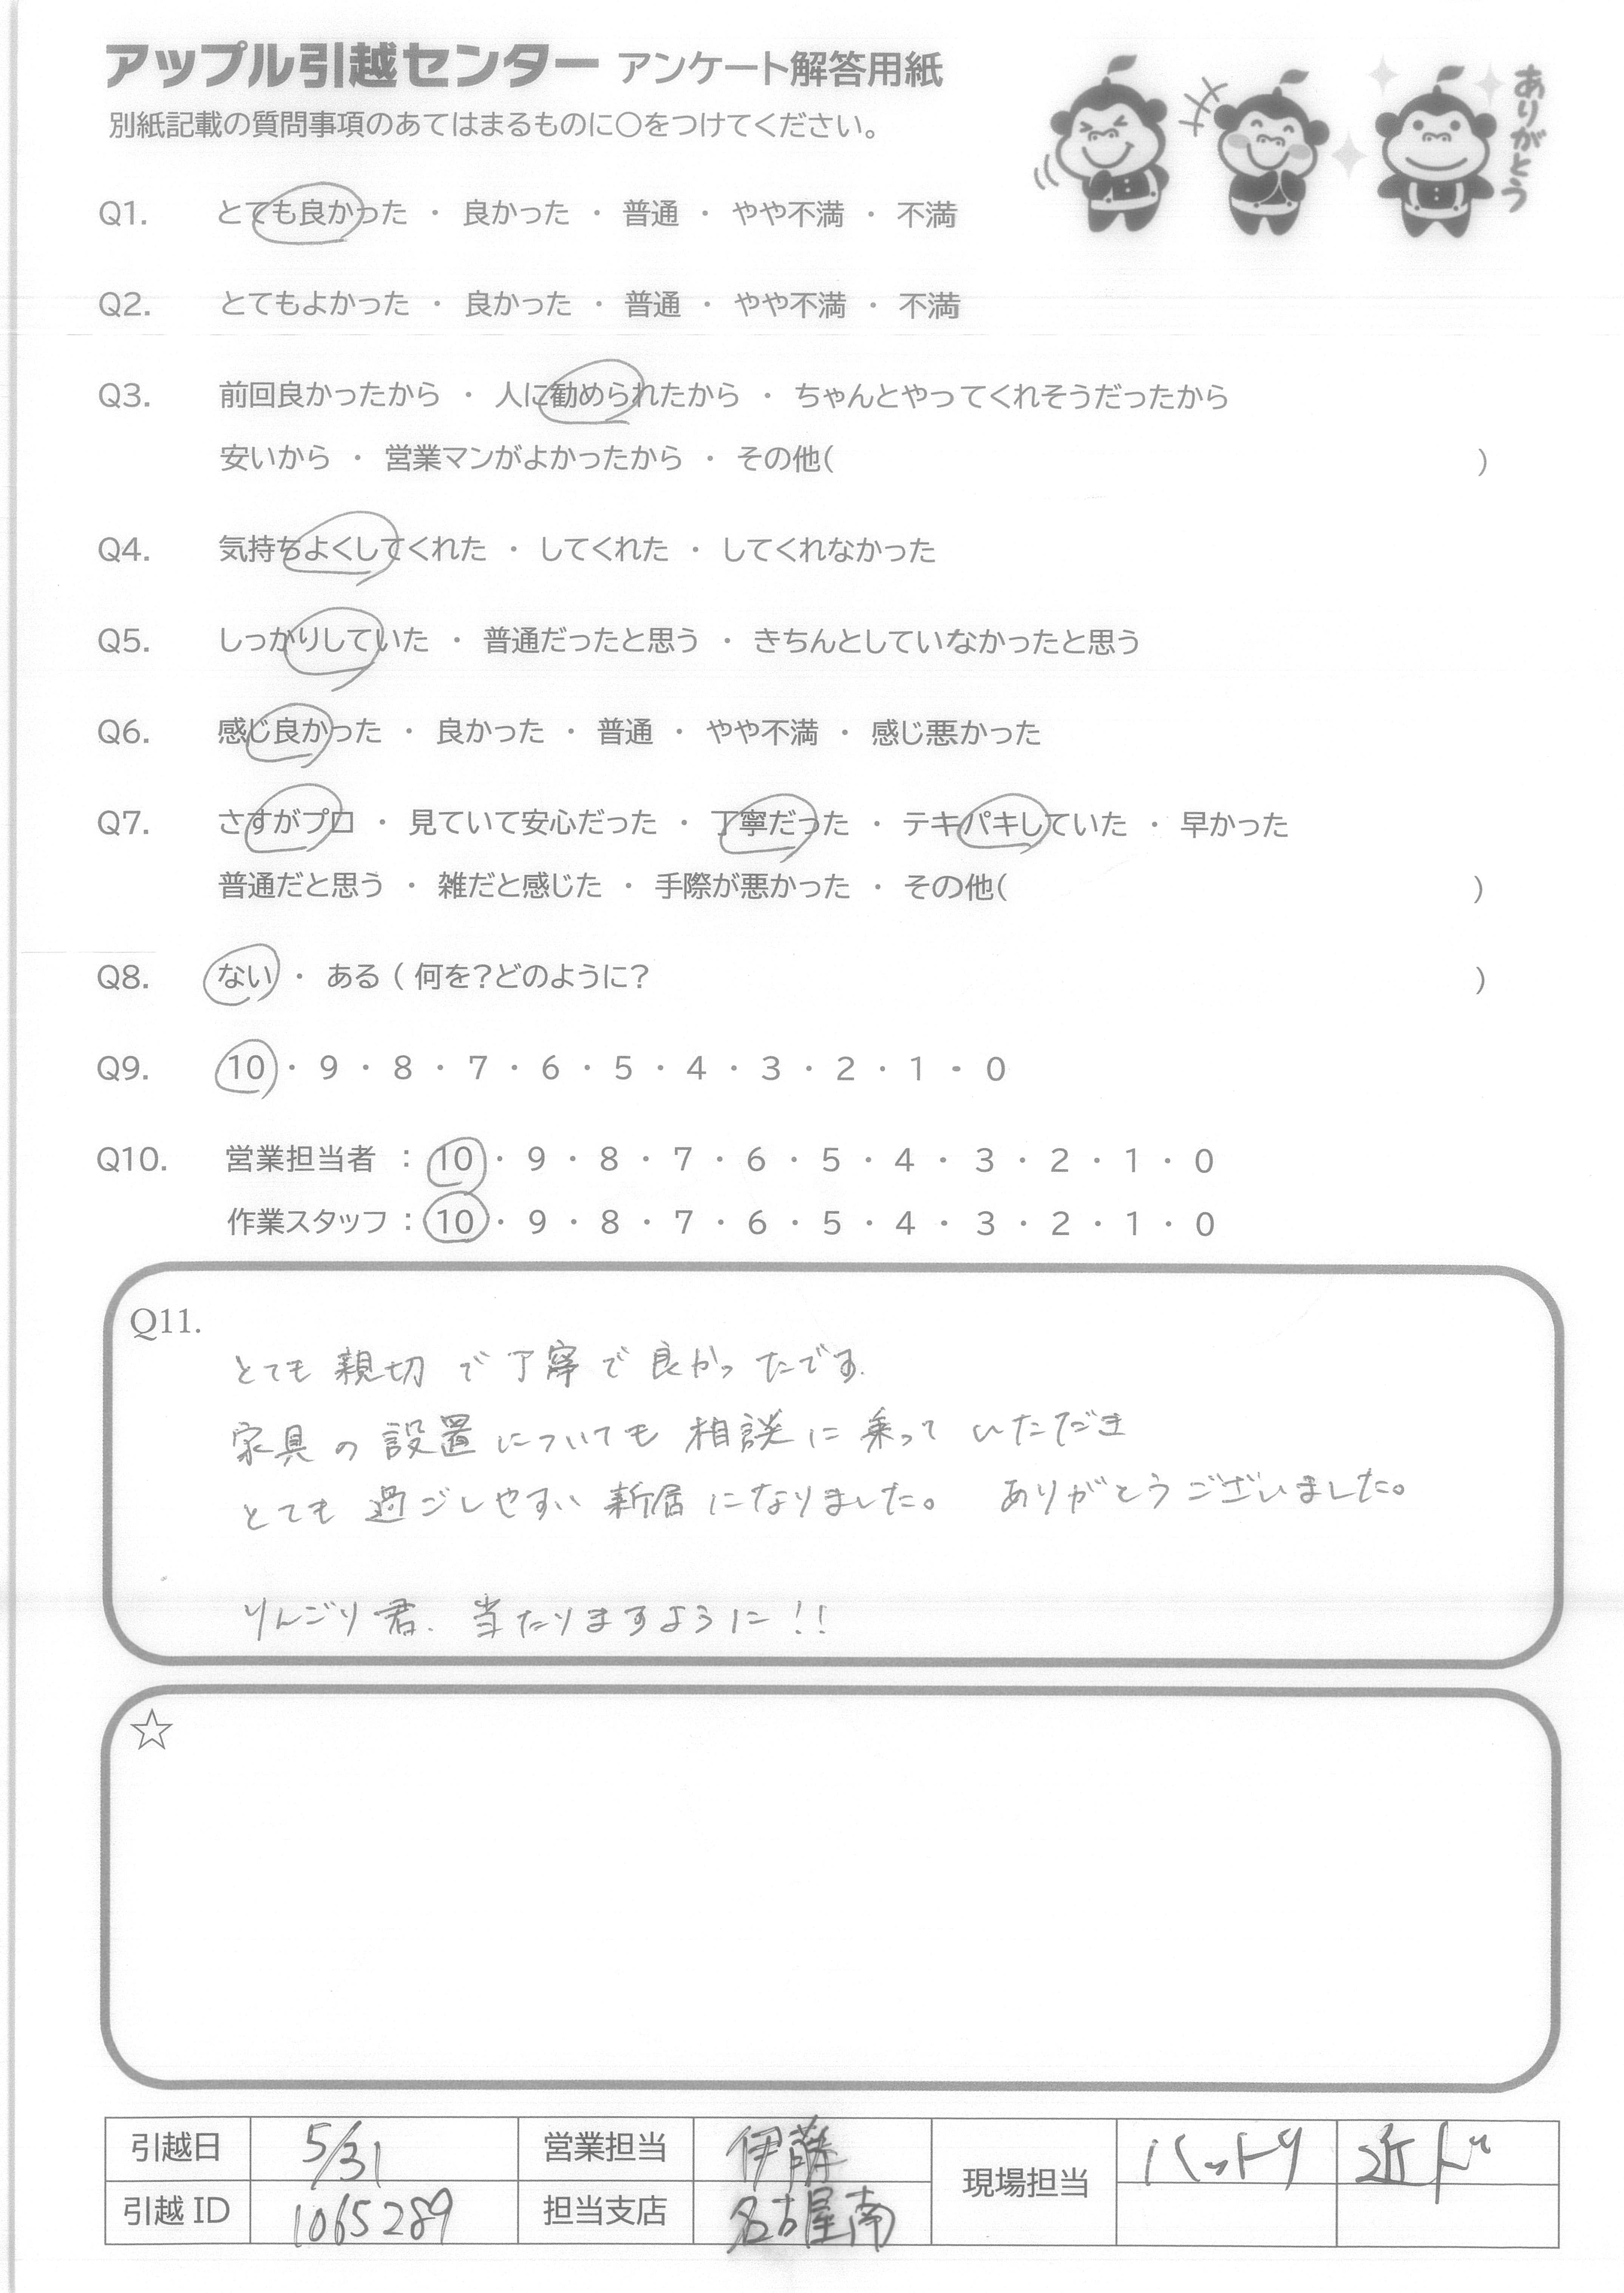 アップル引越センター アンケート解答用紙
別紙記載の質問事項のあてはまるものに○をつけてください。
ありがとう
Q1. とても良かった ・ 良かった ・ 普通 ・ やや不満 ・ 不満
Q2. とてもよかった ・ 良かった ・ 普通 ・ やや不満 ・ 不満
Q3. 前回良かったから ・ 人に勧められたから ・ ちゃんとやってくれそうだったから
安いから ・ 営業マンがよかったから ・ その他( )
Q4. 気持ちよくしてくれた ・ してくれた ・ してくれなかった
Q5. しっかりしていた ・ 普通だったと思う ・ きちんとしていなかったと思う
Q6. 感じ良かった ・ 良かった ・ 普通 ・ やや不満 ・ 感じ悪かった
Q7. さすがプロ ・ 見ていて安心だった ・ 丁寧だった ・ テキパキしていた ・ 早かった
普通だと思う ・ 雑だと感じた ・ 手際が悪かった ・ その他( )
Q8. ない ・ ある ( 何を?どのように? )
Q9. 10 ・ 9 ・ 8 ・ 7 ・ 6 ・ 5 ・ 4 ・ 3 ・ 2 ・ 1 ・ 0
Q10. 営業担当者 : 10 ・ 9 ・ 8 ・ 7 ・ 6 ・ 5 ・ 4 ・ 3 ・ 2 ・ 1 ・ 0
作業スタッフ : 10 ・ 9 ・ 8 ・ 7 ・ 6 ・ 5 ・ 4 ・ 3 ・ 2 ・ 1 ・ 0
Q11.
とても親切で丁寧で良かったです.
家具の設置についても相談に乗っていただき
とても過ごしやすい新居になりました。 ありがとうございました。
りんごり君. 当たりますように!!
☆
引越日 5/31 営業担当 伊藤 現場担当 ハットリ
引越ID 1065289 担当支店 名古屋南